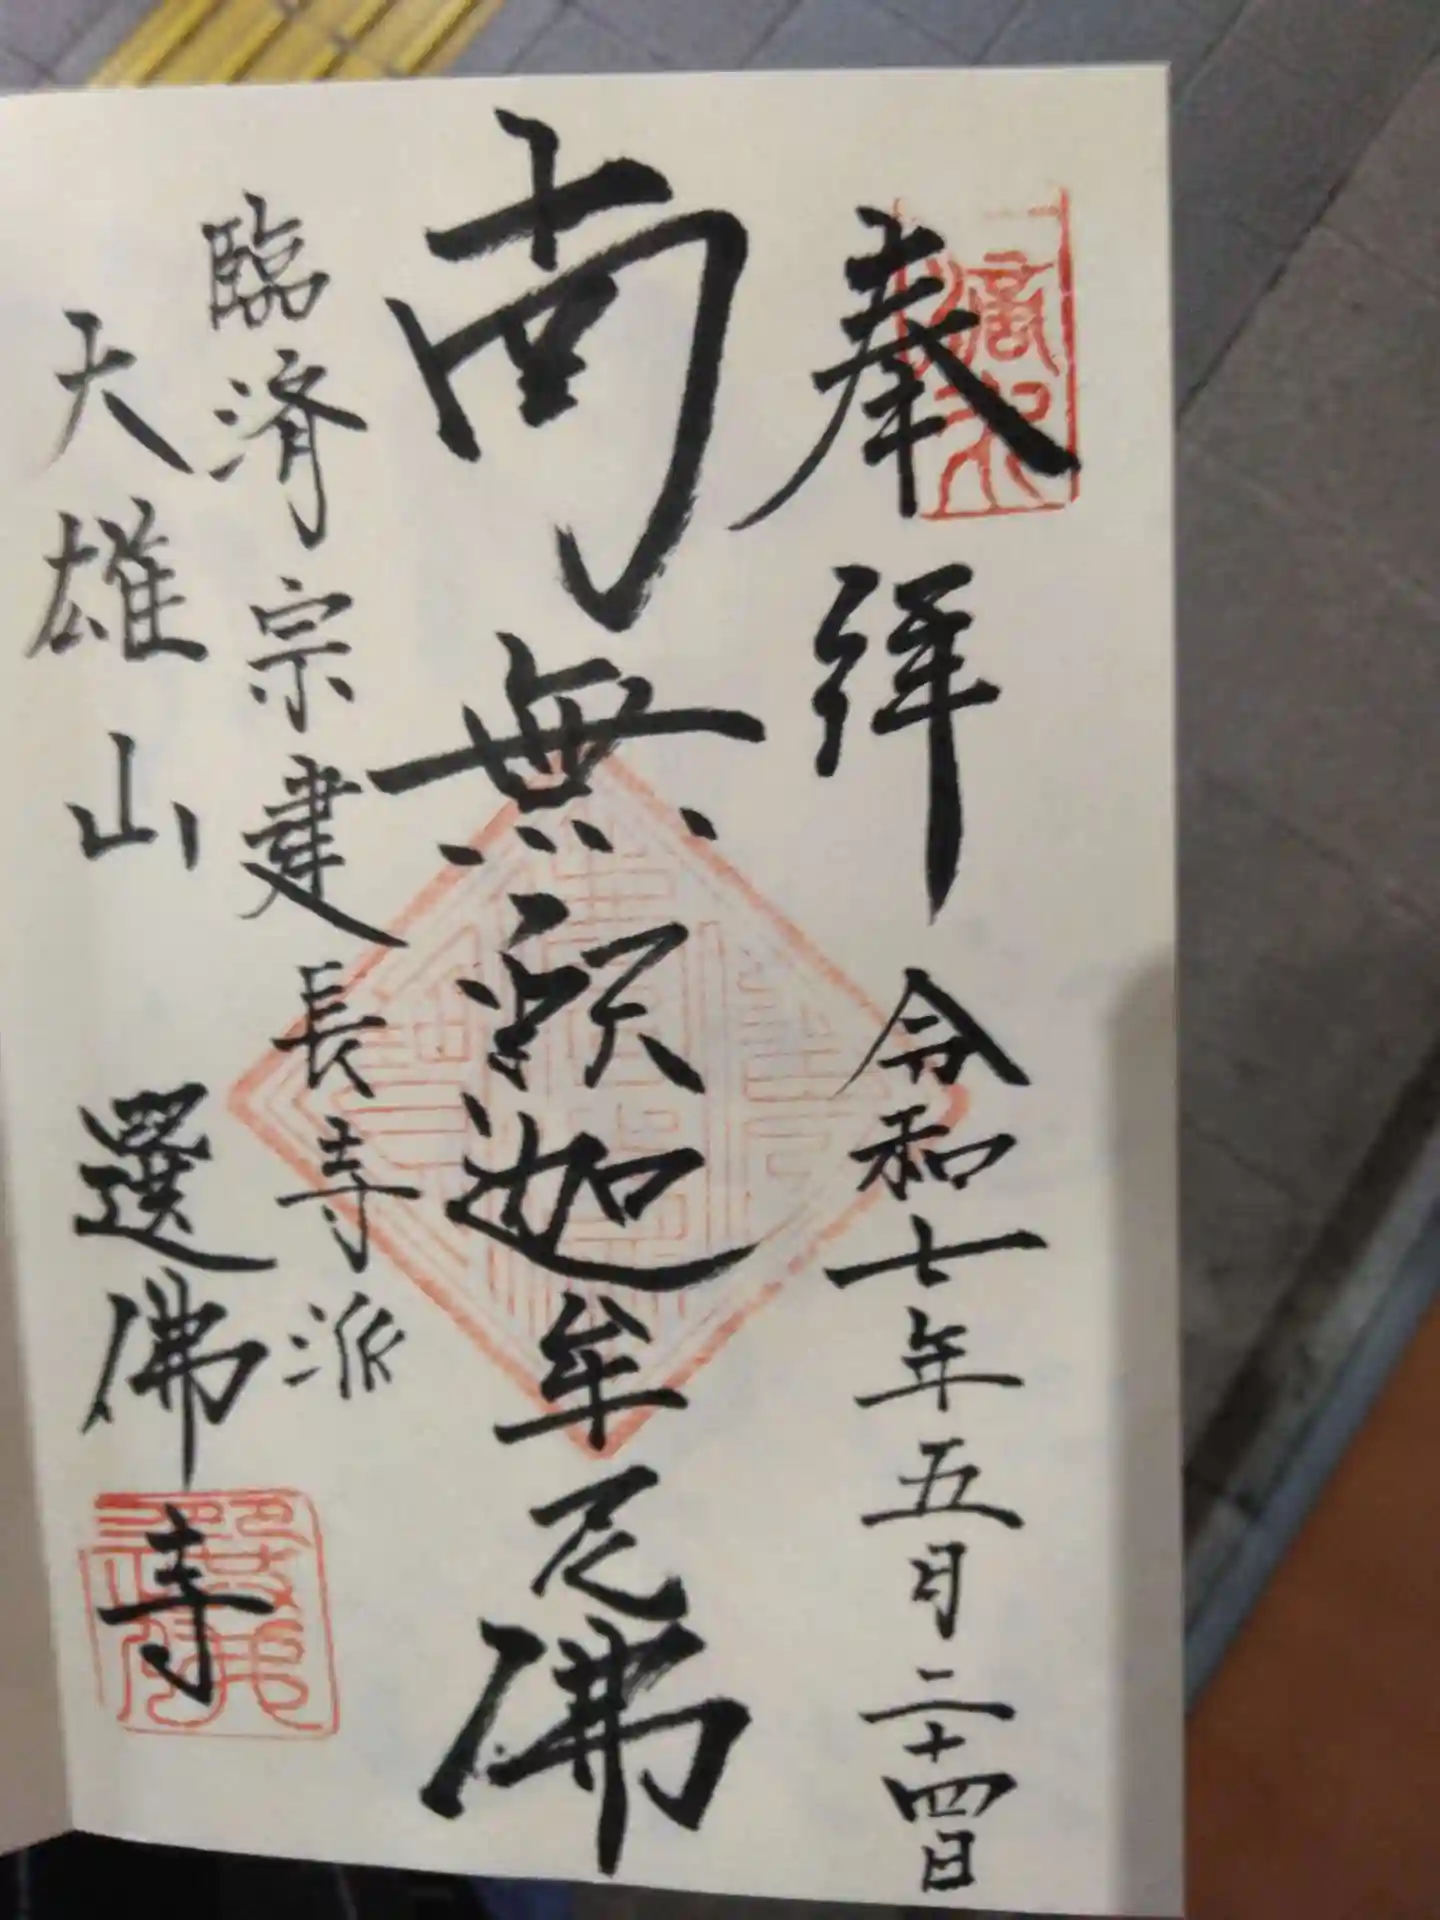 奉拝 令和七年五月二十四日
南無釈迦牟尼佛
臨済宗建長寺派
大雄山 選佛寺